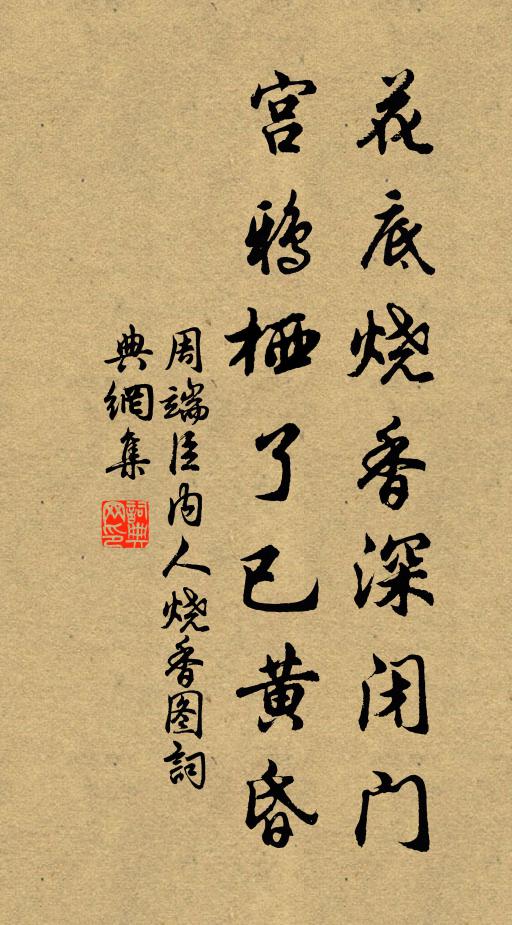 花底烧香深闭门
宫鸦栖了已黄昏
周端臣内人烧香图詞
典網集
詞典网印